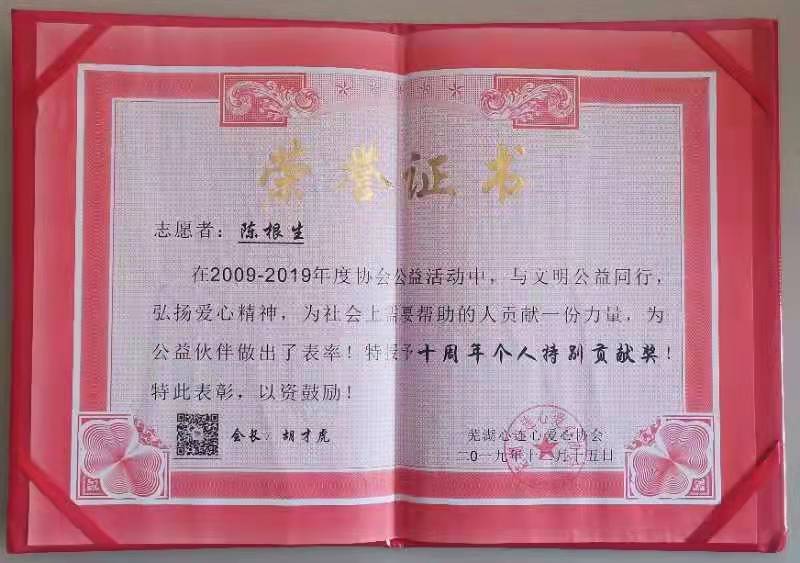 荣誉证书
志愿者：陈根生
在2009-2019年度协会公益活动中，与文明公益同行，
弘扬爱心精神，为社会上需要帮助的人贡献一份力量，为
公益伙伴做出了表率！特授予十周年个人特别贡献奖！
特此表彰，以资鼓励！
会长：胡才虎
芜湖心连心爱心协会
二0一九年十二月十五日